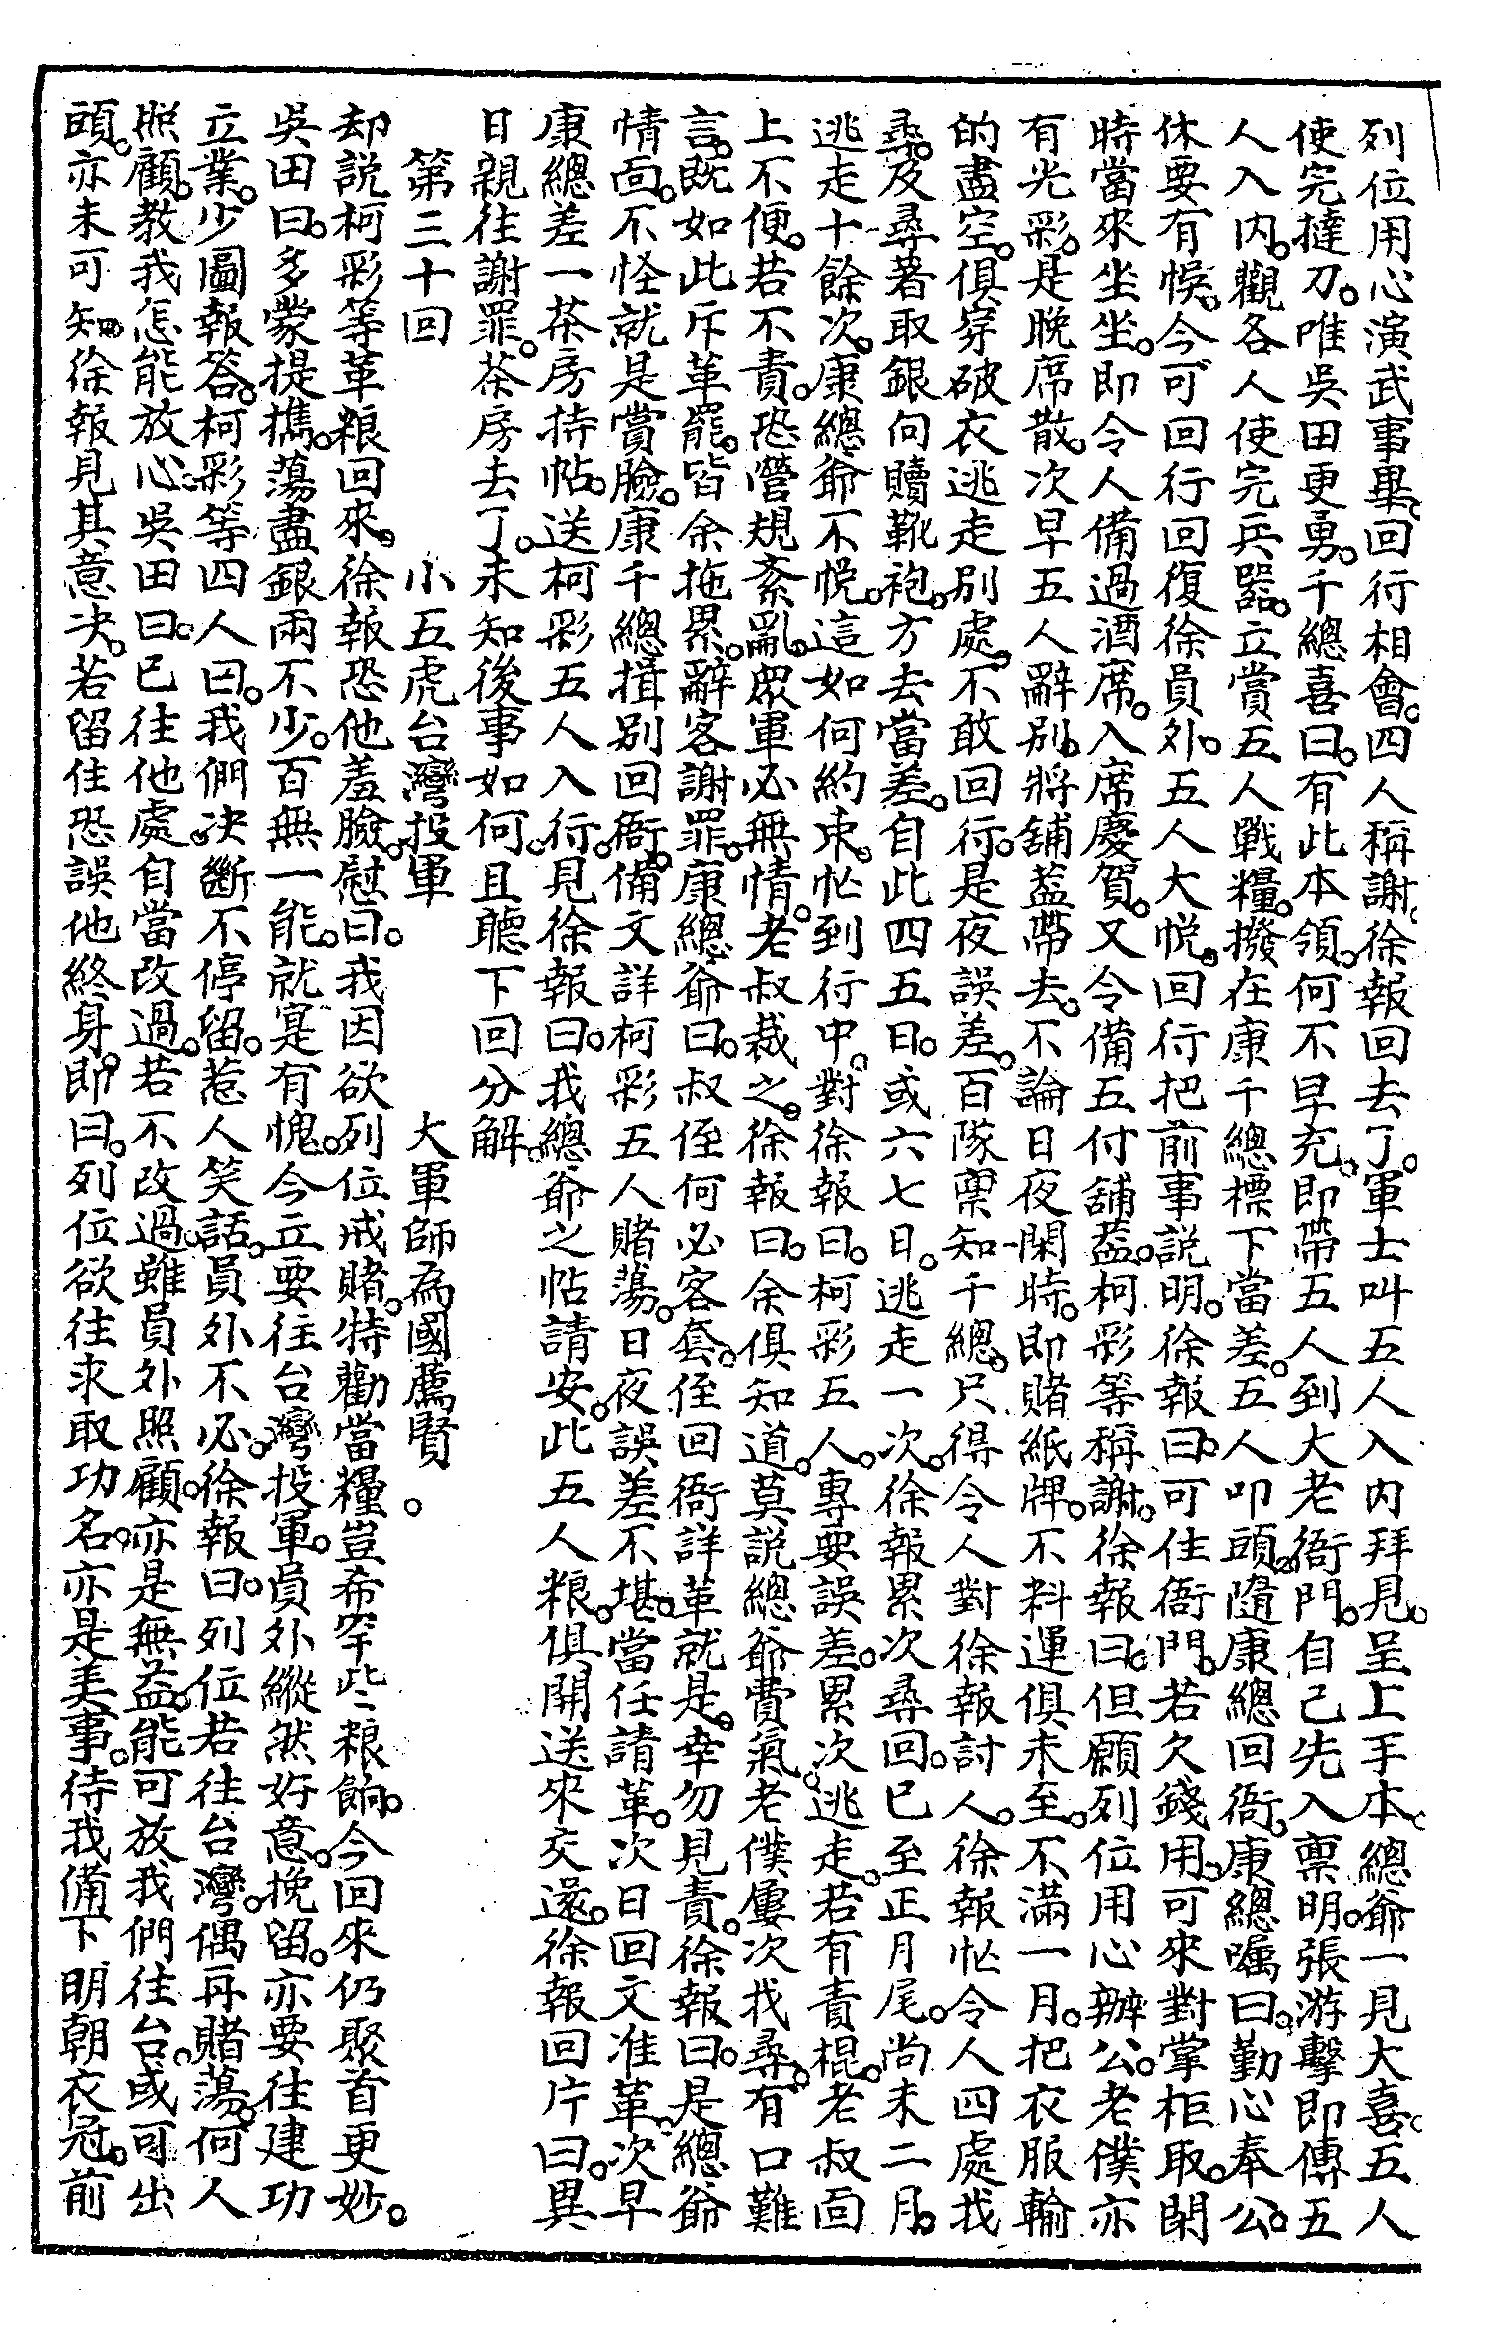 列位用心演武事畢。回行相會。四人稱謝。徐報回去了。軍士叫五人入内拜見。呈上手本。總爺一見大喜。五人
使完撻刀。唯吳田更勇。千總喜曰。有此本領。何不早充。即帶五人到大老衙門。自己先入禀明。張游擊即傳五
人入内。觀各人使完兵器。立賞五人戰糧。撥在康千總標下當差。五人叩頭。隨康總回衙。康總嘱曰。勤心奉公。
休要有悞。今可回行回復徐員外。五人大悦。回行把前事説明。徐報曰。可住衙門。若欠錢用。可來對掌柜取。閑
時當來坐坐。即令人備過酒席。入席慶賀。又令備五付舖葢。柯彩等稱謝。徐報曰。但願列位用心辦公。老僕亦
有光彩。是晚席散。次早五人辭別。將舖葢帶去。不論日夜閑時。即賭紙牌。不料運俱未至。不滿一月。把衣服輸
的盡空。俱穿破衣逃走別處。不敢回行。是夜誤差。百隊禀知千總。只得令人對徐報討人。徐報忙令人四處找
尋。及尋著取銀向贖靴袍。方去當差。自此四五日。或六七日。逃走一次。徐報累次尋回。已至正月尾。尚未二月。
逃走十餘次。康總爺不悦。這如何約束。忙到行中。對徐報曰。柯彩五人。專要誤差。累次逃走。若有責棍。老叔面
上不便。若不責。恐營規紊亂。眾軍必無情。老叔裁之。徐報曰。余俱知道。莫説總爺費氣。老僕屢次找尋。有口難
言。既如此斥革罷。皆余拖累。辭客謝罪。康總爺曰。叔侄何必客套。侄回衙詳革就是。幸勿見責。徐報曰。是總爺
情面。不怪就是賞臉。康千總揖別回衙。備文詳柯彩五人賭蕩。日夜誤差不堪。當任請革。次日回文准革。次早
康總差一茶房持帖。送柯彩五人入行。見徐報曰。我總爺之帖請安。此五人粮。俱開送來交還。徐報回片曰。異
日親往謝罪。茶房去了。未知後事如何。且聽下回分解。
第三十回　小五虎台灣投軍　大軍師為國薦賢。
却説柯彩等革粮回來。徐報恐他羞臉。慰曰。我因欲列位戒賭。特勸當糧豈希罕些粮餉。今回來仍聚首更妙。
吳田曰。多蒙提攜。蕩盡銀兩不少。百無一能。就寔有愧。今立要往台灣投軍。員外縱然好意。挽留。亦要往建功
立業。少圖報答。柯彩等四人曰。我們决斷不停留。惹人笑話。員外不必。徐報曰。列位若往台灣。偶再賭蕩。何人
照顧。教我怎能放心。吳田曰。已往他處。自當改過。若不改過。雖員外照顧。亦是無益。能可放我們往台。或可出
頭。亦未可知。徐報見其意决。若留住恐誤他終身。即曰。列位欲往求取功名。亦是美事。待我備下明朝衣冠。前